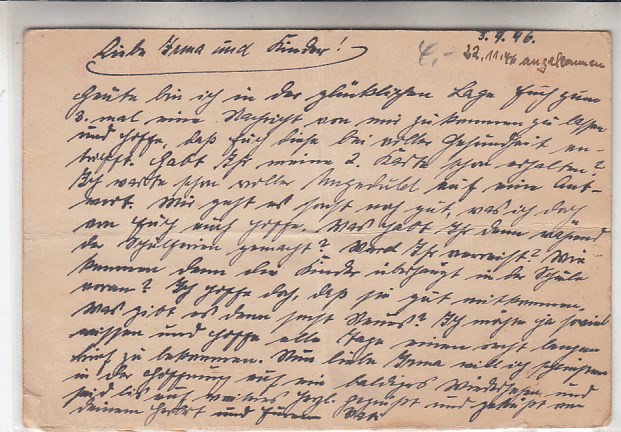 3.9.46.
22.11.46 angekommen
Liebe Irma und Kinder!
Heute bin ich in der glücklichen Lage Euch zum
3. mal eine Nachricht von mir zukommen zu lassen
und hoffe, daß Euch diese bei voller Gesundheit an-
trifft. Habt Ihr meine 2. Karte schon erhalten?
Ich warte schon voller Ungeduld auf eine Ant-
wort. Mir geht es sonst noch gut, was ich doch
von Euch auch hoffe. Was habt Ihr denn während
der Schulferien gemacht? Ward Ihr verreist? Wie
kommen denn die Kinder überhaupt in der Schule
voran? Ich hoffe doch, daß sie gut mitkommen.
Was gibt es denn sonst Neues? Ich möchte ja soviel
wissen und hoffe alle Tage einen recht langen
Brief zu bekommen. Nun liebe Irma will ich schließen
in der Hoffnung auf ein baldiges Wiedersehen und
seid bis auf weiteres herzl. gegrüßt und geküßt von
deinem und Eurem Vati